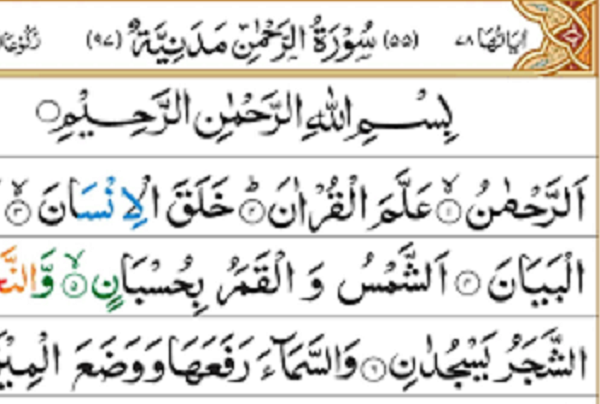 اٰيَاتُهَا ٧٨ (٥٥) سُوْرَةُ الرَّحْمٰنِ مَدَنِيَّةٌ (٩٧)
بِسْمِ اللّٰهِ الرَّحْمٰنِ الرَّحِيْمِ○
اَلرَّحْمٰنُ ۙ﴿١﴾ عَلَّمَ الْقُرْاٰنَ ؕ﴿٢﴾ خَلَقَ الْاِنْسَانَ ۙ﴿٣﴾
الْبَيَانَ ﴿٤﴾ اَلشَّمْسُ وَ الْقَمَرُ بِحُسْبَانٍ ۙ﴿٥﴾ وَّالنَّجْ
الشَّجَرُ يَسْجُدٰنِ ﴿٦﴾ وَالسَّمَآءَ رَفَعَهَا وَوَضَعَ الْمِيْ